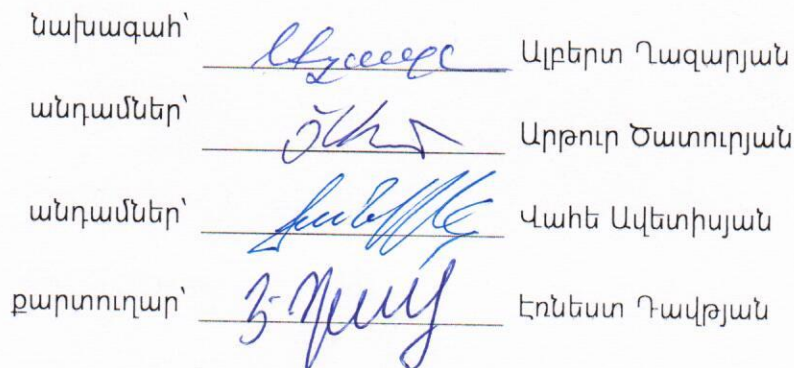 նախագահ՝ Ալբերտ Ղազարյան
անդամներ՝ Արթուր Ծատուրյան
անդամներ՝ Վահե Ավետիսյան
քարտուղար՝ Էռնեստ Դավթյան